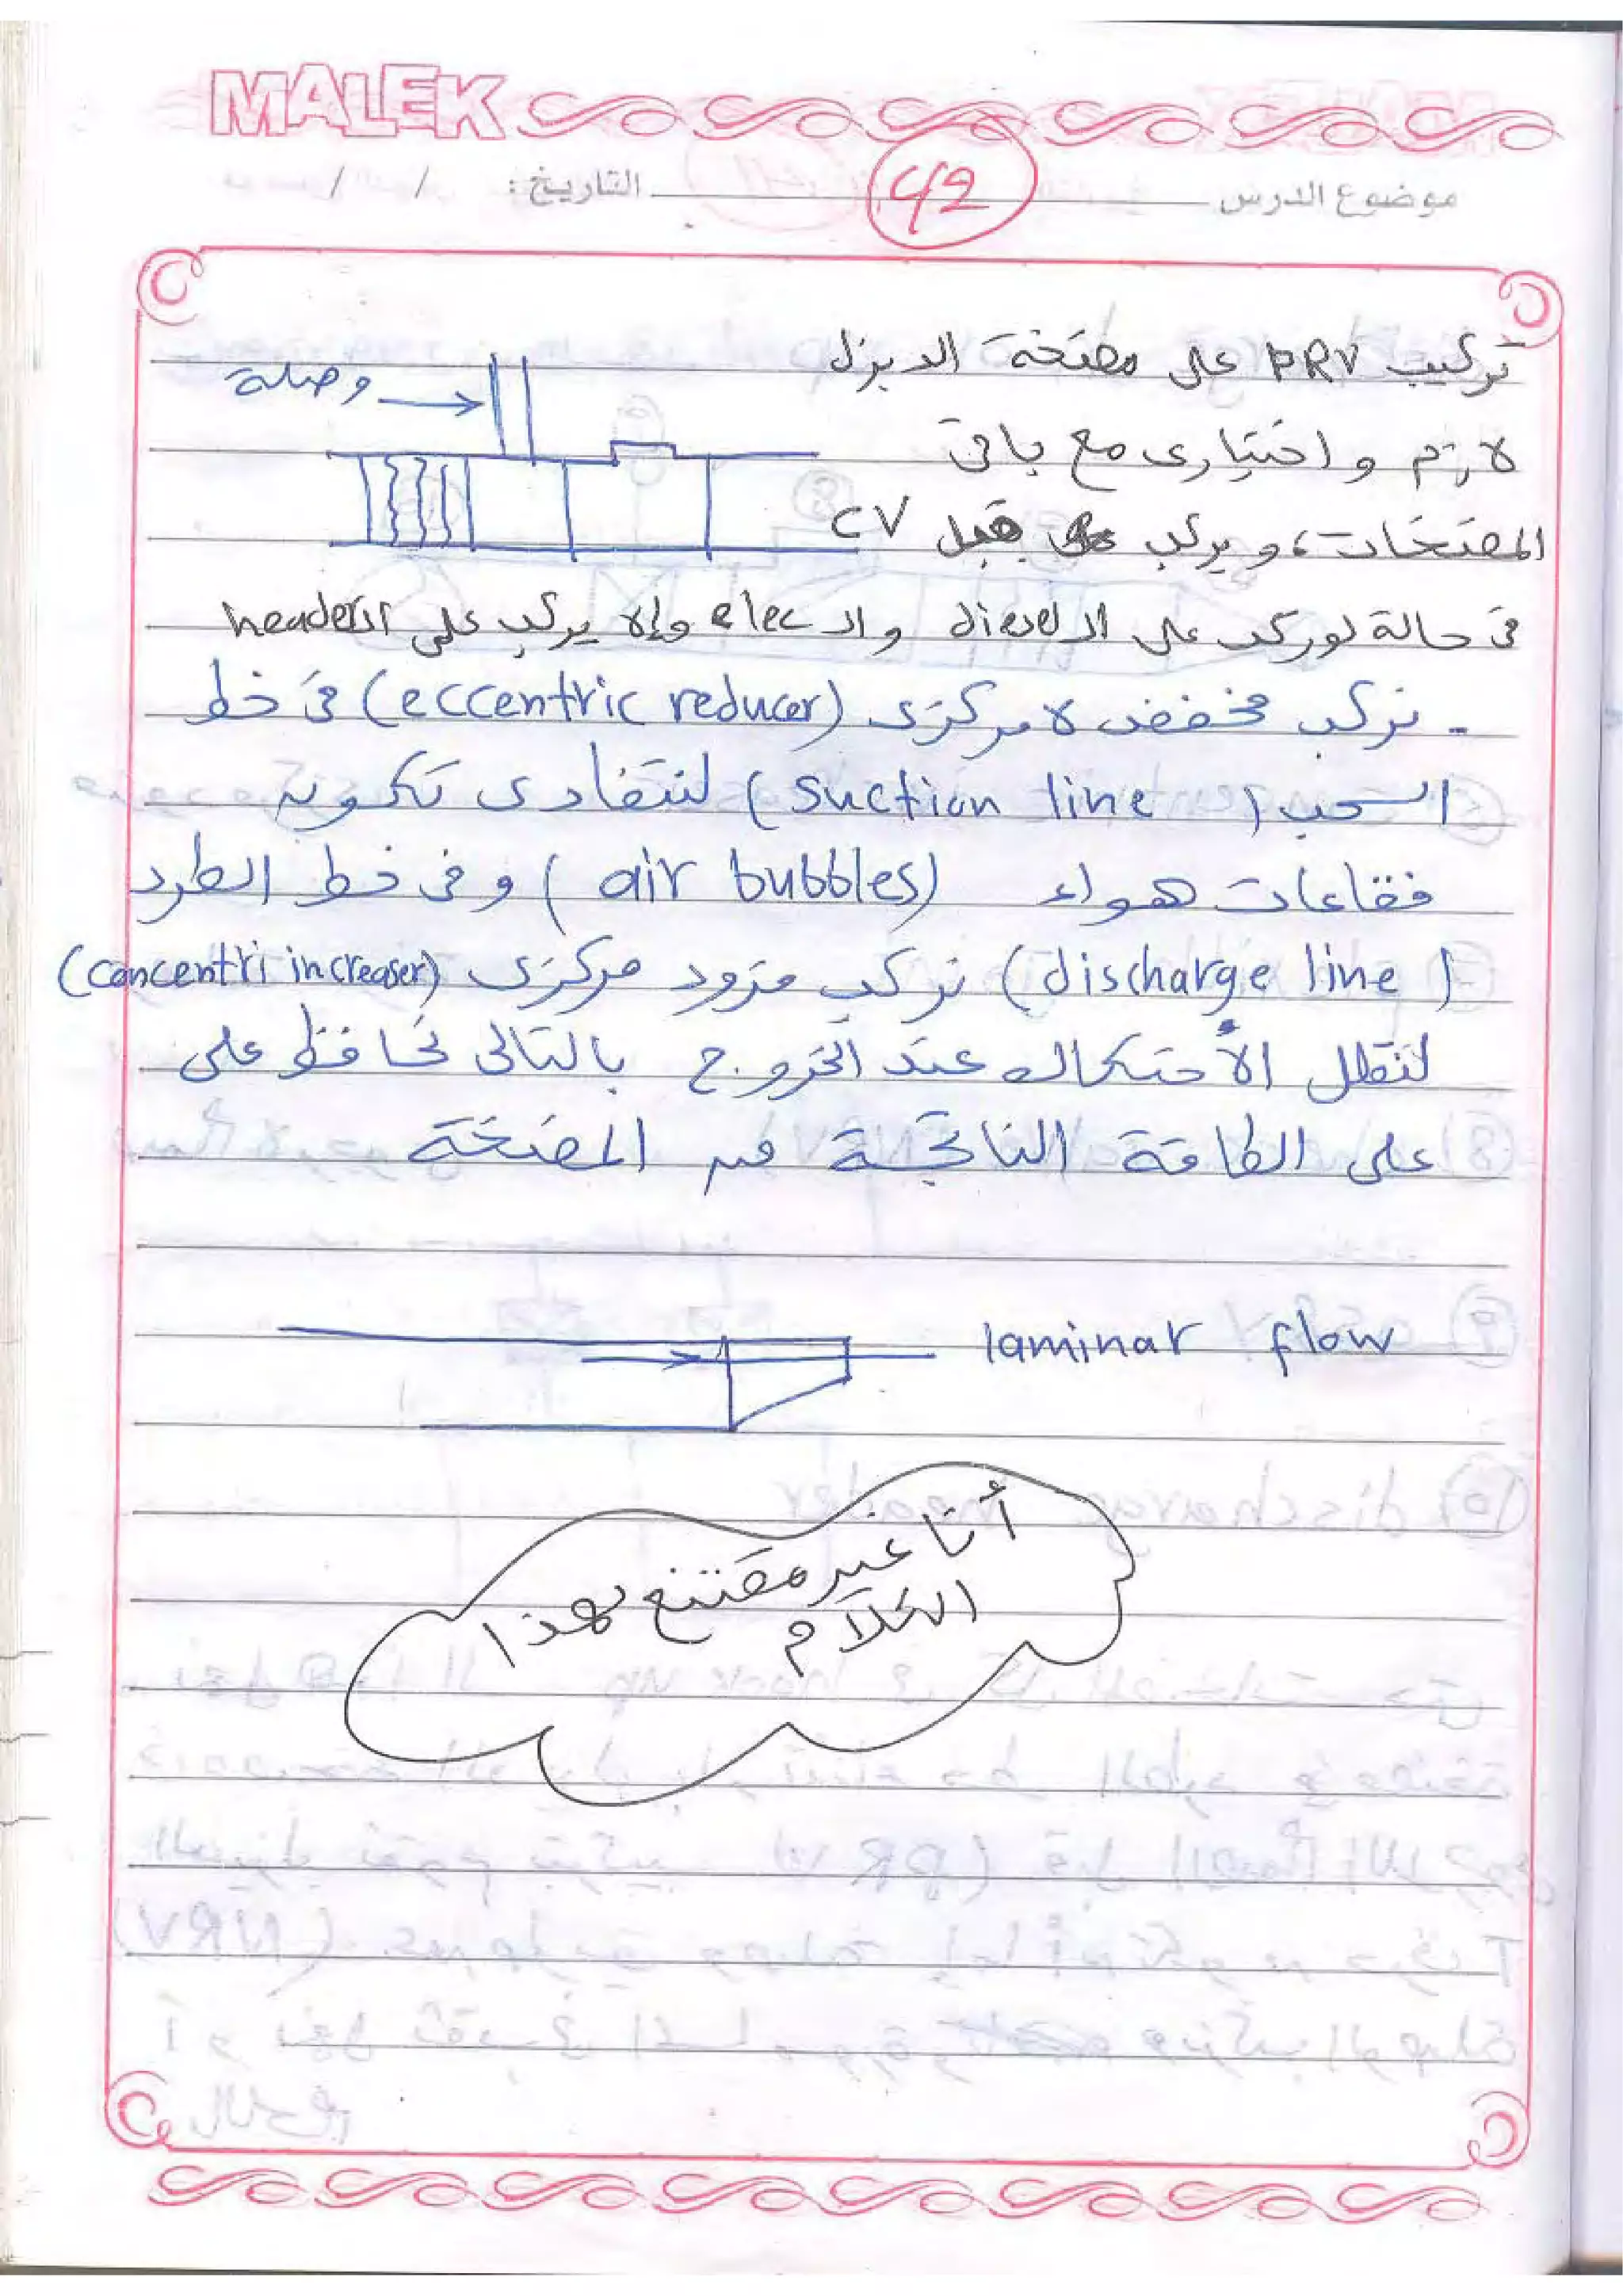 MALEK
موضوع الدرس
42
التاريخ: / /
تركيب PRV على مضخة الديزل
لازم واختيارى مع باقى
المضخات، ويركب قبل CV
فى حالة لو ركب على الـ diesel والـ elec وإلا يركب على الـ header
وصلة
- نركب مخفض لامركزى (eccentric reducer) فى خط
السحب (suction line) لنتفادى تكون
فقاعات هواء (air bubbles) وفى خط الطرد
(discharge line) نركب مزود مركزى (concentri increaser)
لنقلل الأحتكاك عند الخروج بالتالى نحافظ على
على الطاقة الناتجة من المضخة
laminar flow
أنا غير مقتنع بهذا
الكلام